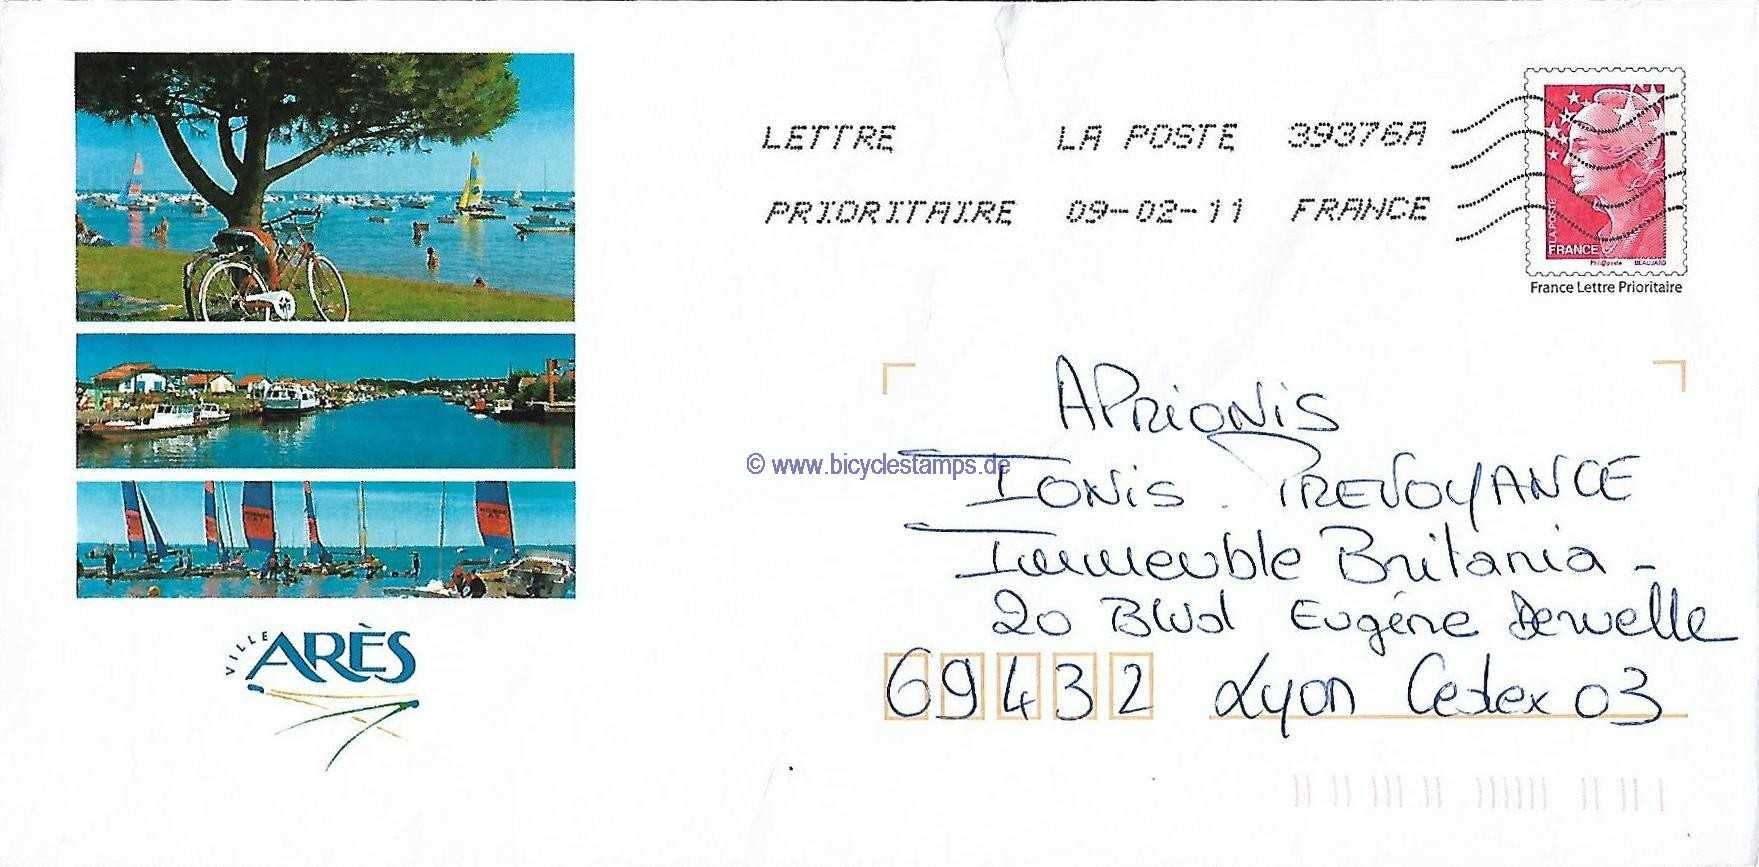 LETTRE LA POSTE 39376A
PRIORITAIRE 09-02-11 FRANCE
LA POSTE
FRANCE
Phil@poste BEAUJARD
France Lettre Prioritaire
APRIONIS
© www.bicyclestamps.de
IONIS . PREVOYANCE
Immeuble Britania -
20 BLVd Eugéne Deruelle
69432 Lyon Cedex 03
VILLE ARÈS